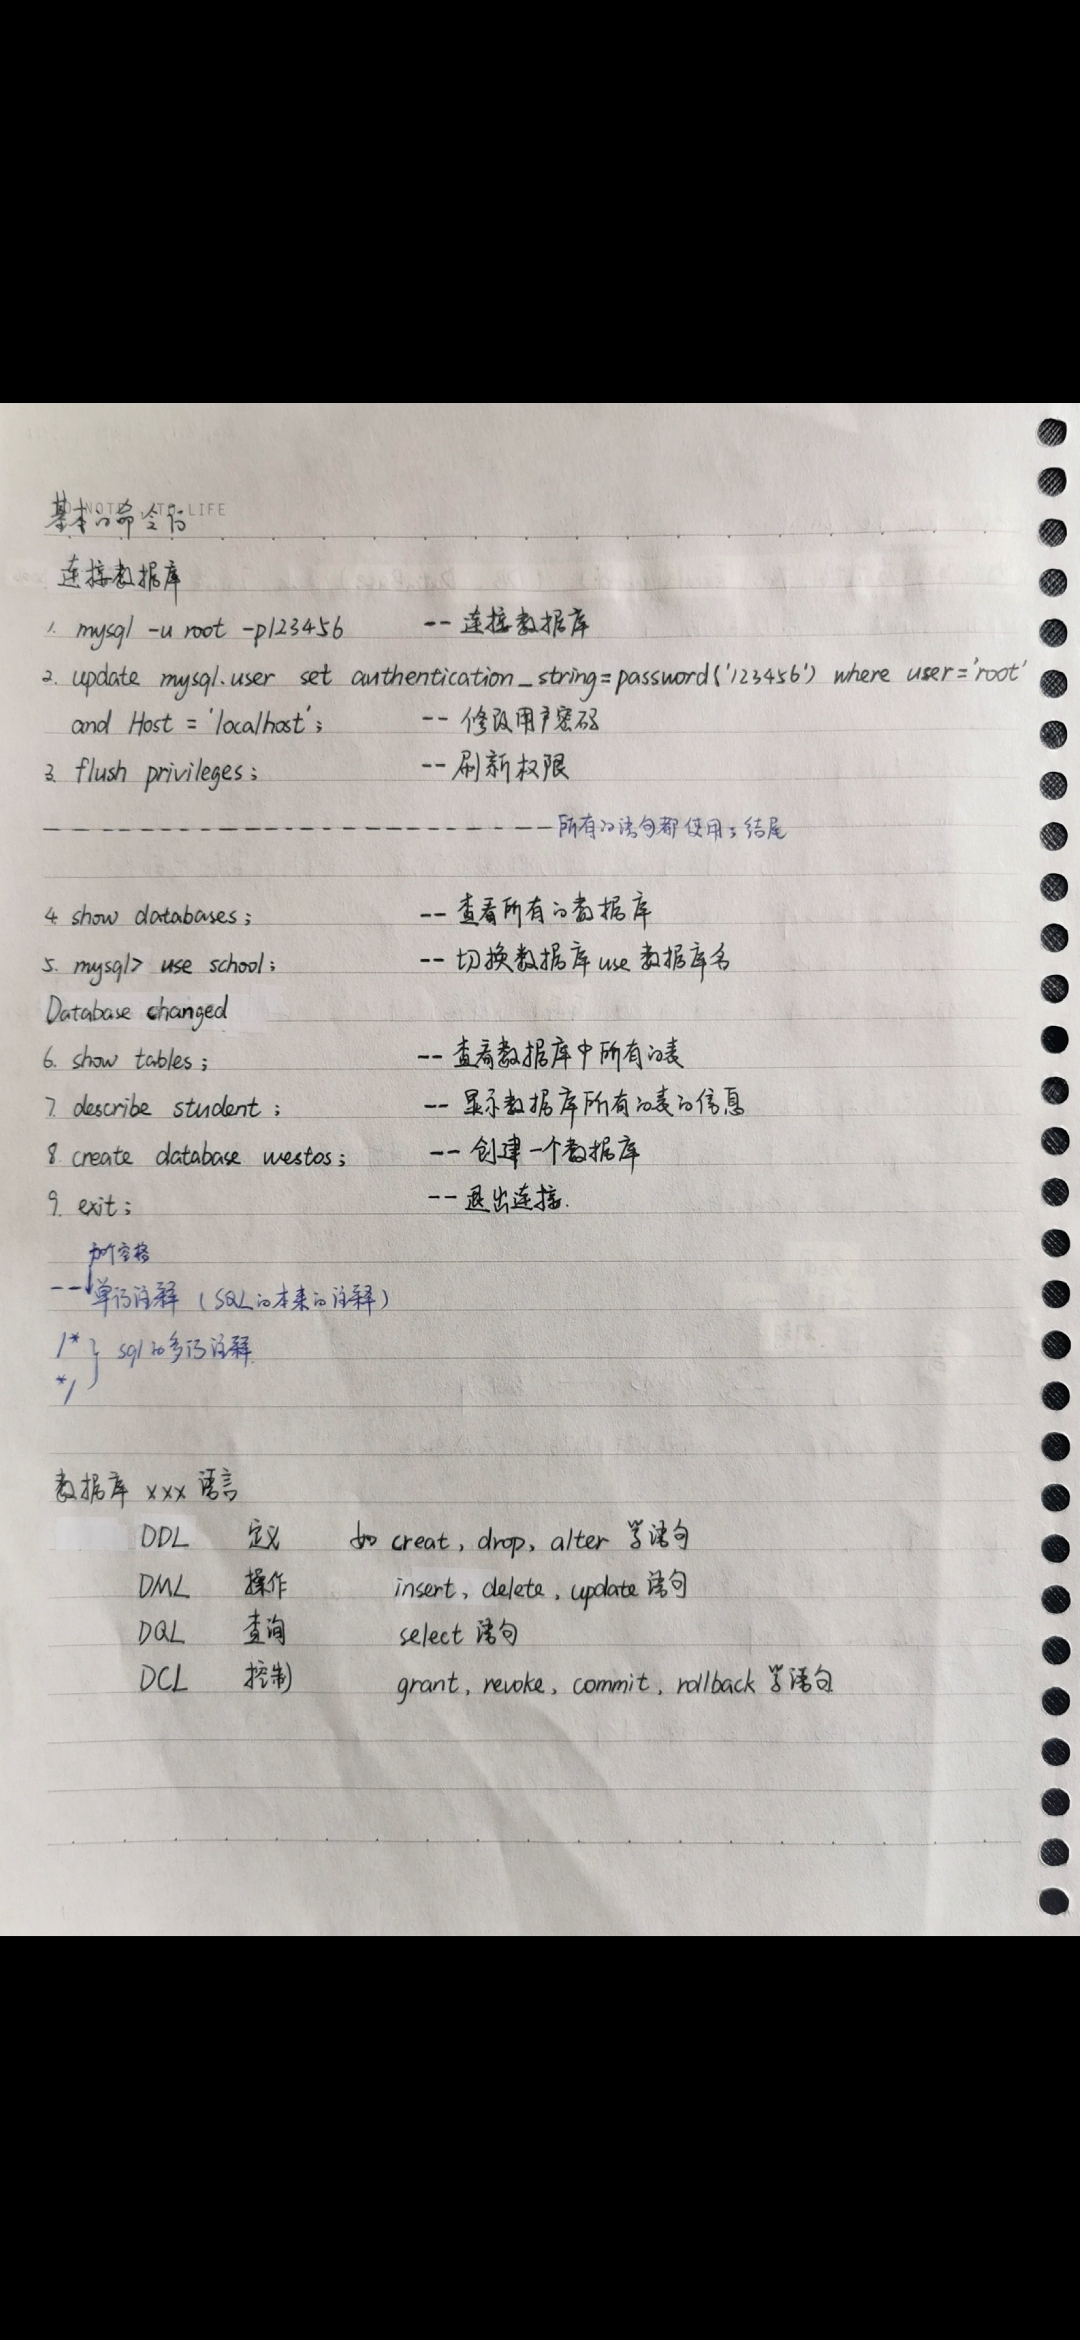 基本的命令行
NOT LIFE
连接数据库
1. mysql -u root -p123456 -- 连接数据库
2. update mysql.user set authentication_string=password('123456') where user='root'
and Host = 'localhost'; -- 修改用户密码
3. flush privileges; -- 刷新权限
---------------------------所有的语句都使用;结尾
4 show databases; -- 查看所有的数据库
5. mysql> use school; -- 切换数据库 use 数据库名
Database changed
6. show tables; -- 查看数据库中所有的表
7. describe student; -- 显示数据库所有的表的信息
8. create database westos; -- 创建一个数据库
9. exit; -- 退出连接.
加个空格
-- 单行注释 (SQL的本来的注释)
/* } sql的多行注释
*/
数据库 xxx 语言
DDL 定义 如 creat, drop, alter 等语句
DML 操作 insert, delete, update 语句
DQL 查询 select 语句
DCL 控制 grant, revoke, commit, rollback 等语句